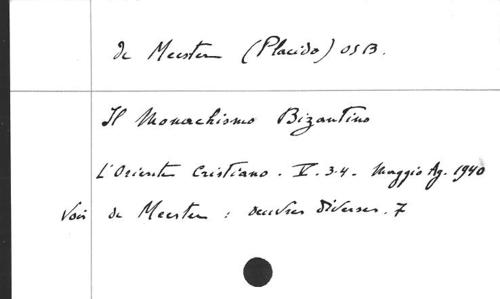 de Meester (Placido) OSB.
Il Monachismo Bizantino
L'Oriente Cristiano. V. 3.4. Maggio Ag. 1940
Voir de Meester : oeuvres diverses. 7